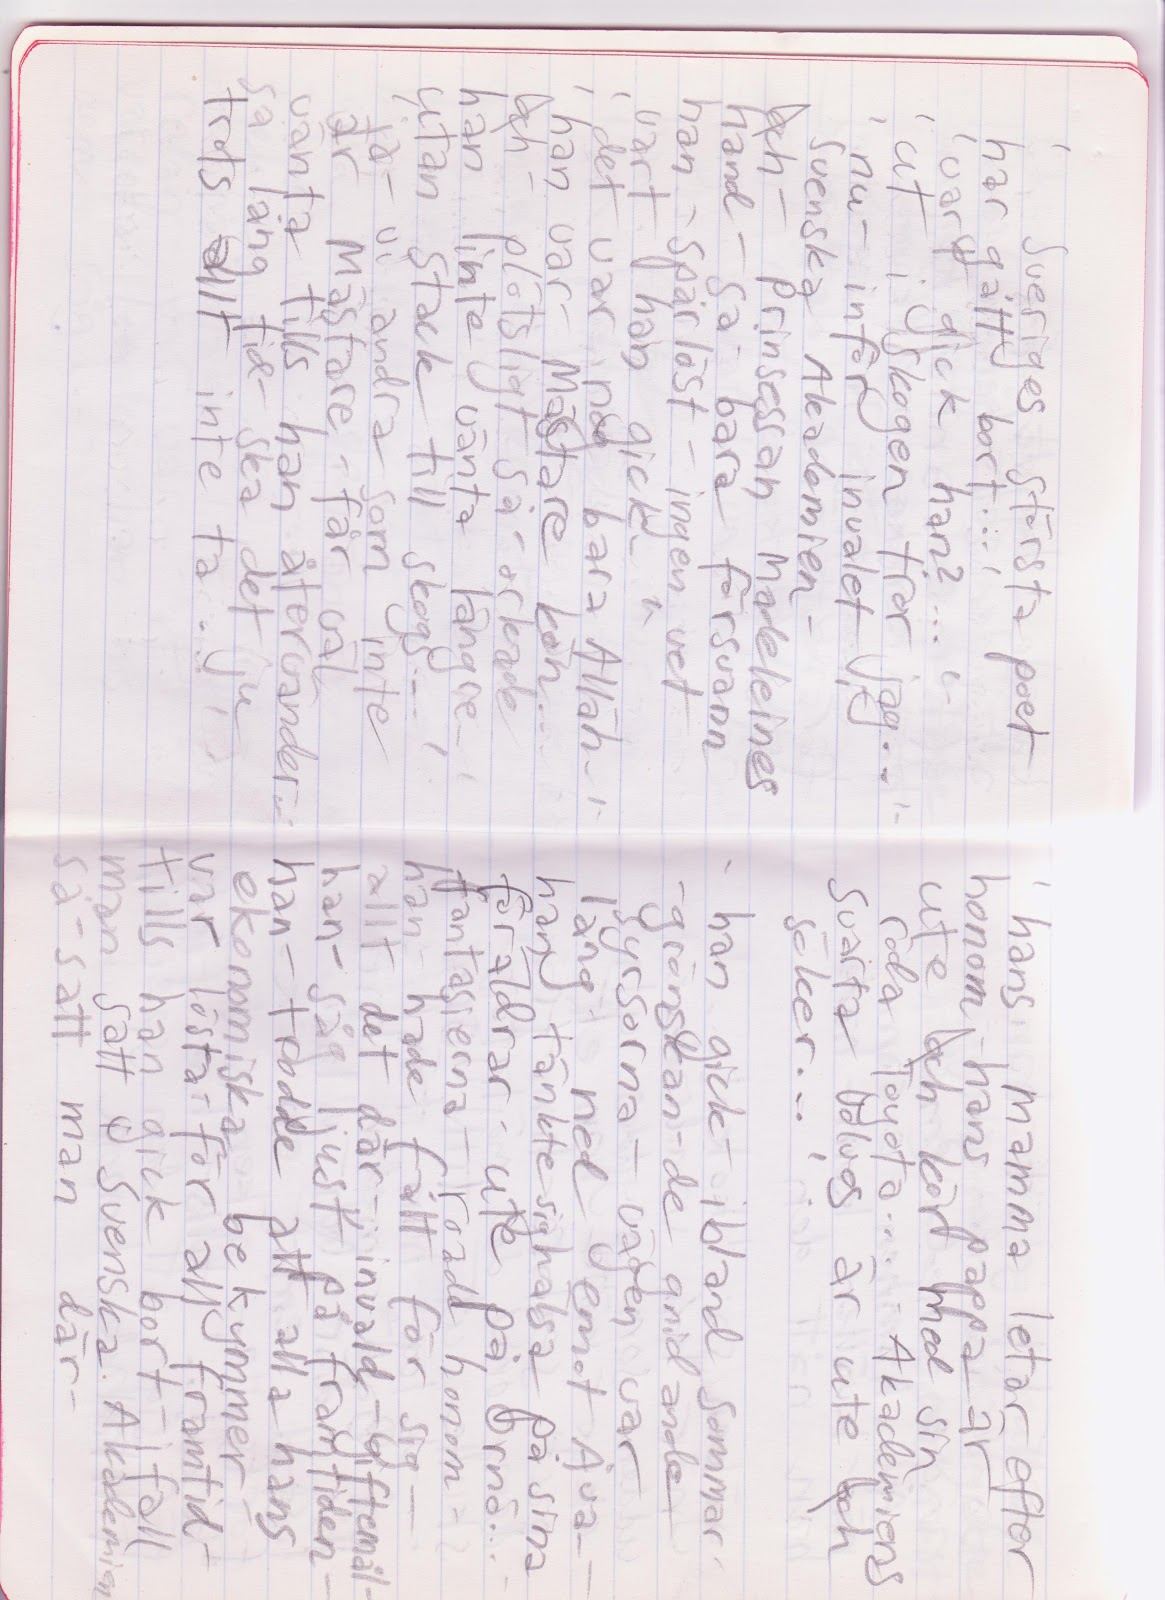 ' Sveriges största poet
har gått bort...'
' vart gick han?...'-
' ut i skogen tror jag...'-
' nu - inför invalet i
Svenska Akademien -
och - prinsessan Madeleines
hand - så - bara försvann
han - spårlöst - ingen vet
vart han gick - "
' det var nog bara Allah - '
' han var Mästare han...
och - plötsligt - så - orkade
han inte vänta längre - '
utan stack till skogs...'
ja - vi andra - som inte
är Mästare - får väl
vänta tills han återvänder...
så lång tid - ska det ju
trots allt inte ta...'
' hans mamma letar efter
honom - hans pappa - är
ute och kört med sin
röda Toyota... - Akademiens
svarta Volvos är ute och
söker...'
- han gick - ibland sommar-
-grönskan - de gnidande
syrsorna - vägen var
lång - ned emot Ava -
han tänkte sig hälsa på sina
föräldrar - ute på Ornö...-
fantasierna - hade honom -
han hade fått för sig -
allt det där - invald - giftemål -
han - såg just på framtiden -
han - trodde att alla hans
ekonomiska bekymmer -
var lösta - för all framtid -
tills han gick bort - ifall
man satt i Svenska Akademien
så - satt man där -